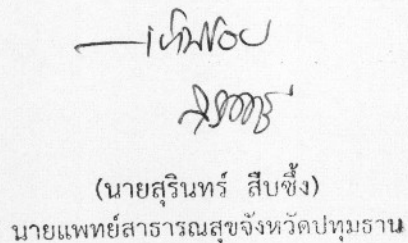 เห็นชอบ
(นายสุรินทร์ สืบซึ้ง)
นายแพทย์สาธารณสุขจังหวัดปทุมธาน